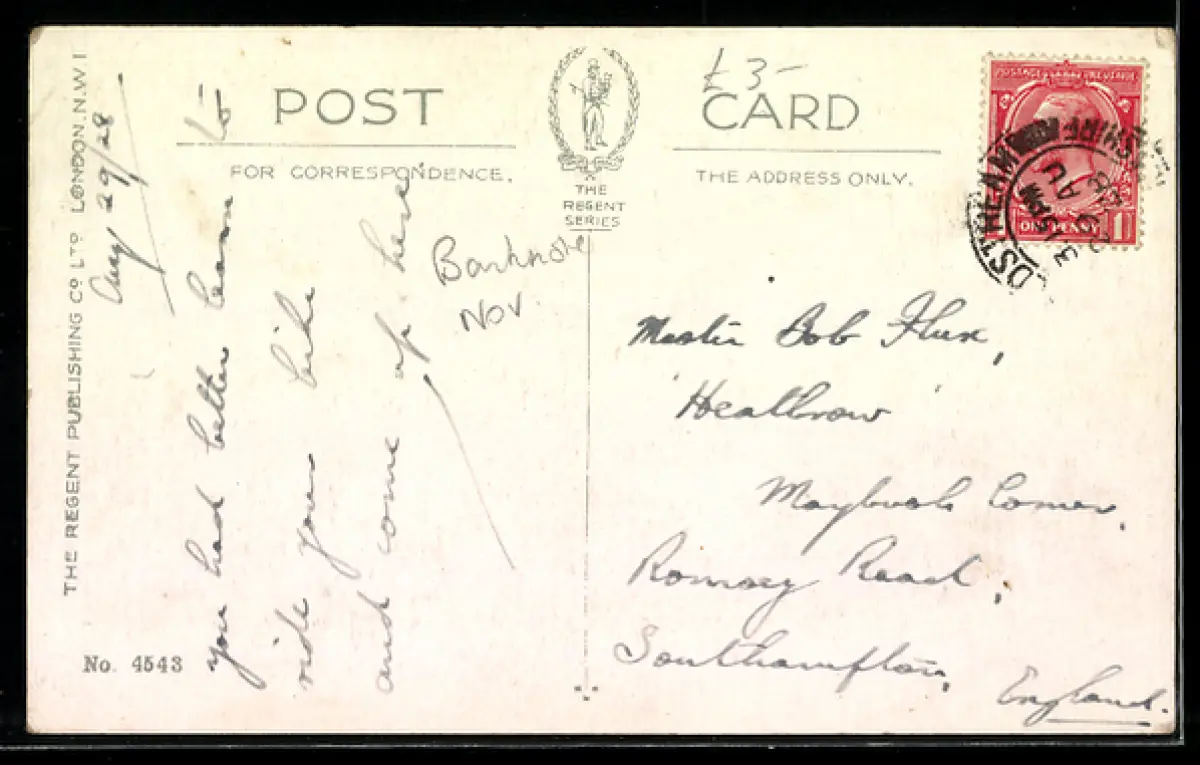 POST CARD
£3-
FOR CORRESPONDENCE.
THE ADDRESS ONLY.
THE
REGENT
SERIES
THE REGENT PUBLISHING Co LTD LONDON. N.W 1
No. 4543
Aug 29/28
you had better learn to
ride your bike
and come up here
Nov
POSTAGE REVENUE
ONE PENNY
AU
Master Bob Flux,
"Heathrow"
Maybush Corner,
Romsey Road,
Southampton,
England.